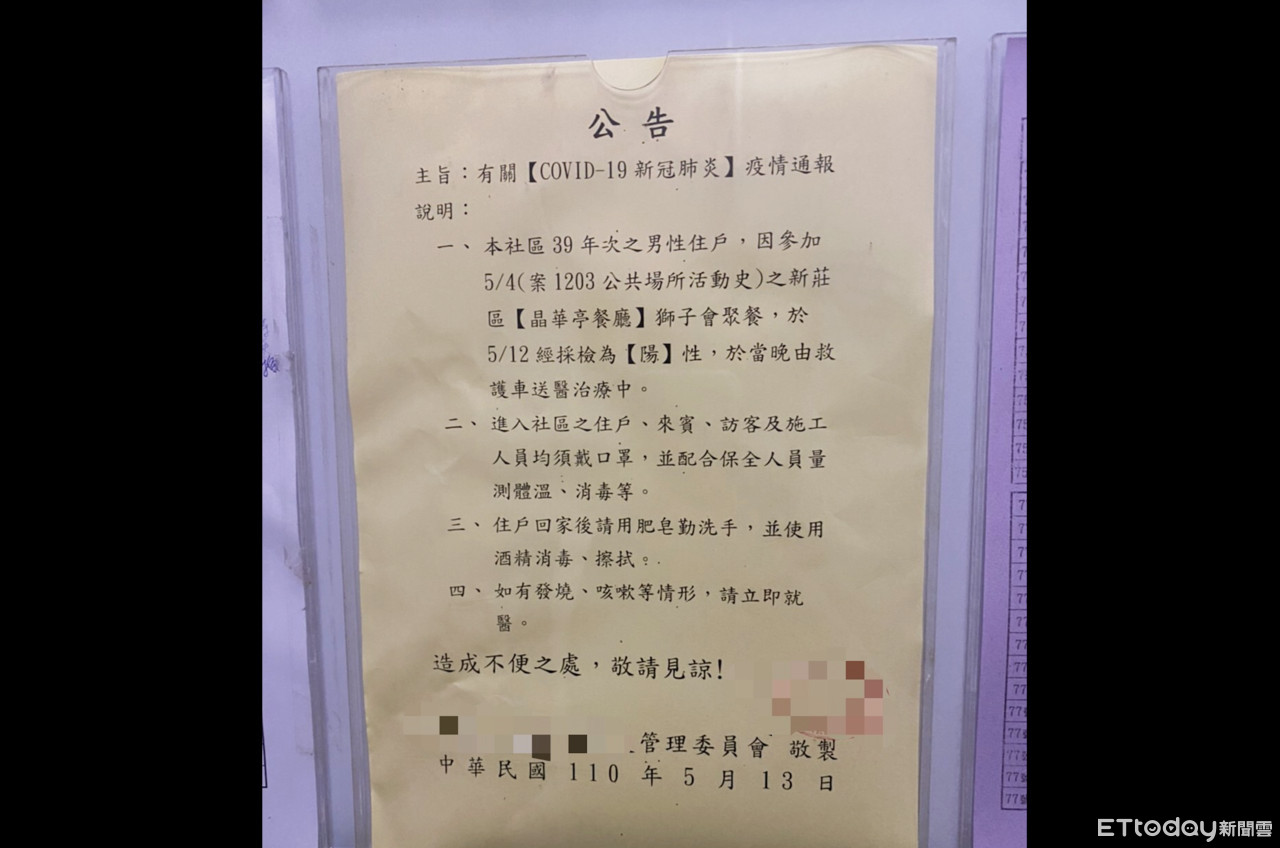 公告
主旨：有關【COVID-19新冠肺炎】疫情通報
說明：
一、本社區39年次之男性住戶，因參加
5/4(案1203公共場所活動史)之新莊
區【晶華亭餐廳】獅子會聚餐，於
5/12經採檢為【陽】性，於當晚由救
護車送醫治療中。
二、進入社區之住戶、來賓、訪客及施工
人員均須戴口罩，並配合保全人員量
測體溫、消毒等。
三、住戶回家後請用肥皂勤洗手，並使用
酒精消毒、擦拭。
四、如有發燒、咳嗽等情形，請立即就
醫。
造成不便之處，敬請見諒!
管理委員會 敬製
中華民國 110 年 5 月 13 日
ETtoday新聞雲